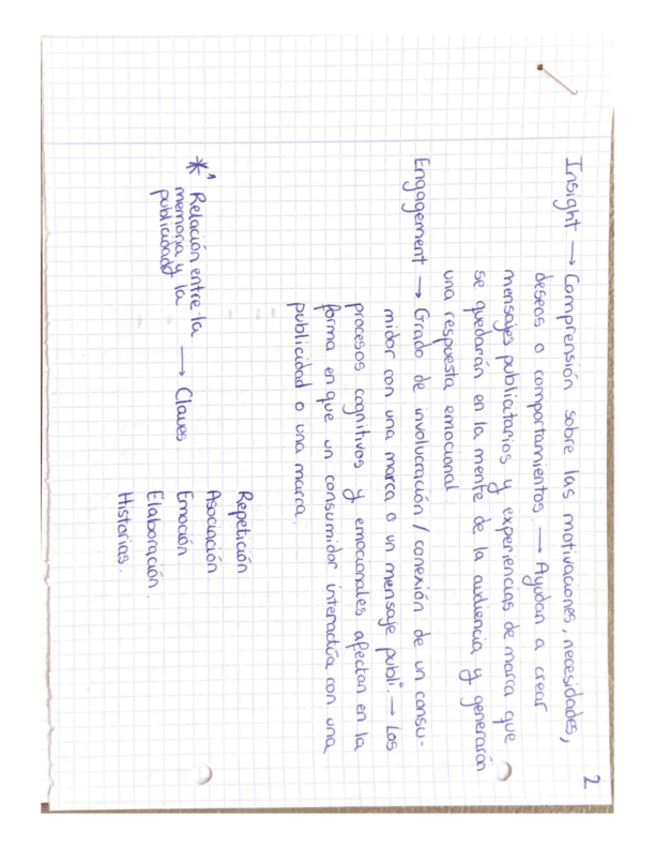 2
Insight → Comprensión sobre las motivaciones, necesidades,
deseos o comportamientos → Ayudan a crear
mensajes publicitarios y experiencias de marca que
se quedarán en la mente de la audiencia y generarán
una respuesta emocional
Engagement → Grado de involucración / conexión de un consu-
midor con una marca o un mensaje publi.° → Los
procesos cognitivos y emocionales afectan en la
forma en que un consumidor interactúa con una
publicidad o una marca.
*¹ Relación entre la
memoria y la
publicidad → Claves
Repetición
Asociación
Emoción
Elaboración.
Historias.